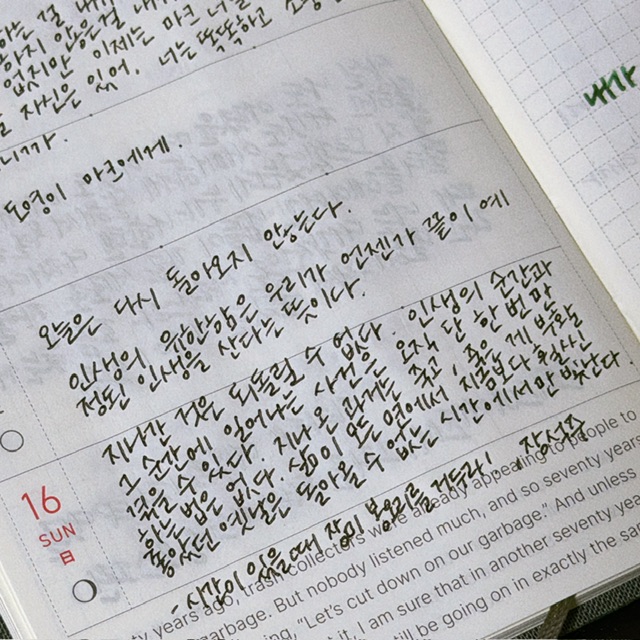 하지 않은걸
없지만 이제는 마크 너를
자신은 있어. 너는 똑똑하고
니까.
도영이 마크에게.
내가
오늘은 다시 돌아오지 않는다.
인생의 유한함은 우리가 언젠가 끝이 예
정된 인생을 산다는 뜻이다.
지나간 것은 되돌릴 수 없다. 인생의 순간과
그 순간에 일어나는 사건은 오직 단 한 번만
겪을 수 있다. 지나온 과거는 죽고, 죽은 게 부활
하는 법은 없다. 삶이 모든 면에서 지금보다 확실히
좋았던 옛날은 돌아올 수 없는 시간에서만 빛난다.
- 사랑이 있을 때 장미 봉오리를 거두라!, 장석주
16
SUN
日
ty years ago, trash collectors were already appealing to people to
garbage. But nobody listened much, and so seventy years
"Let's cut down on our garbage." And unless
it, I am sure that in another seventy
ll be going on in exactly the